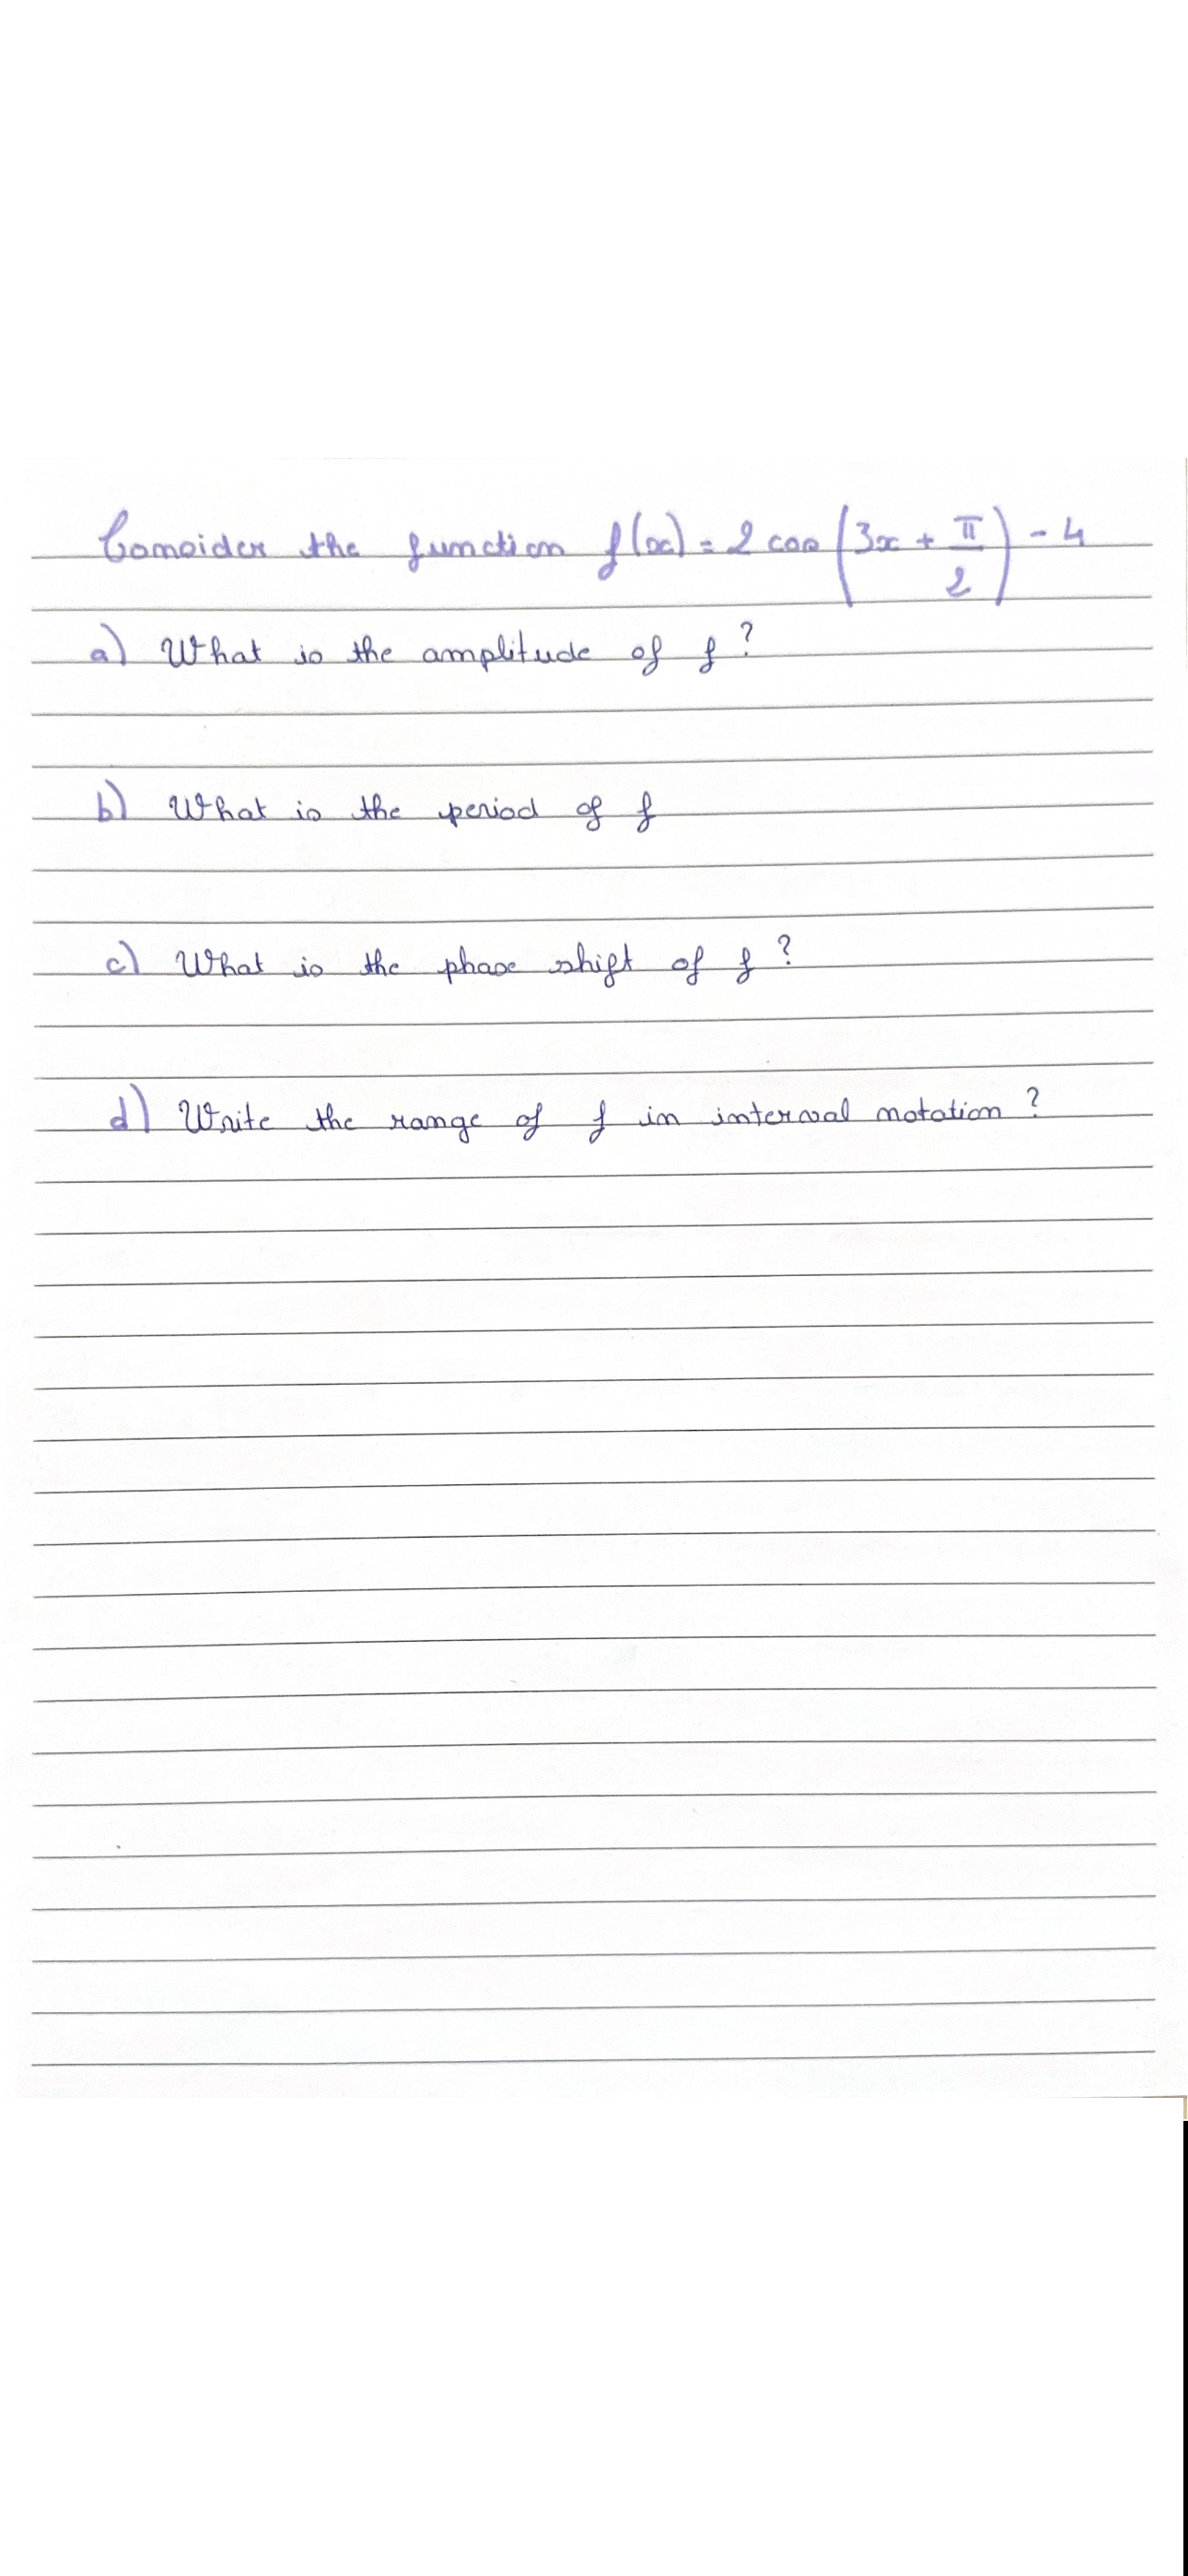 Consider the function f(x) = 2 cos (3x + π/2) - 4
a) What is the amplitude of f ?
b) What is the period of f
c) What is the phase shift of f ?
d) Write the range of f in interval notation ?